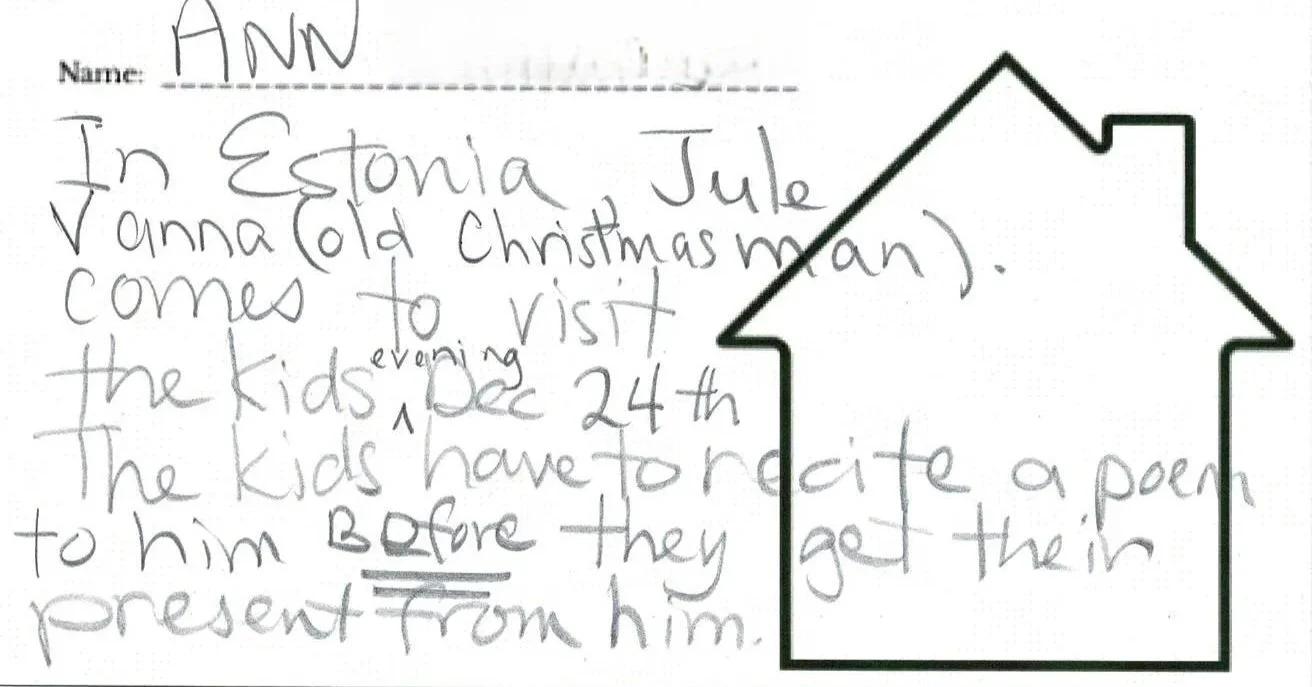 Name: ANN
In Estonia, Jule
Vanna (old Christmas man).
comes to visit
the kids evening Dec 24th
The kids have to recite a poem
to him Before they get their
present from him.